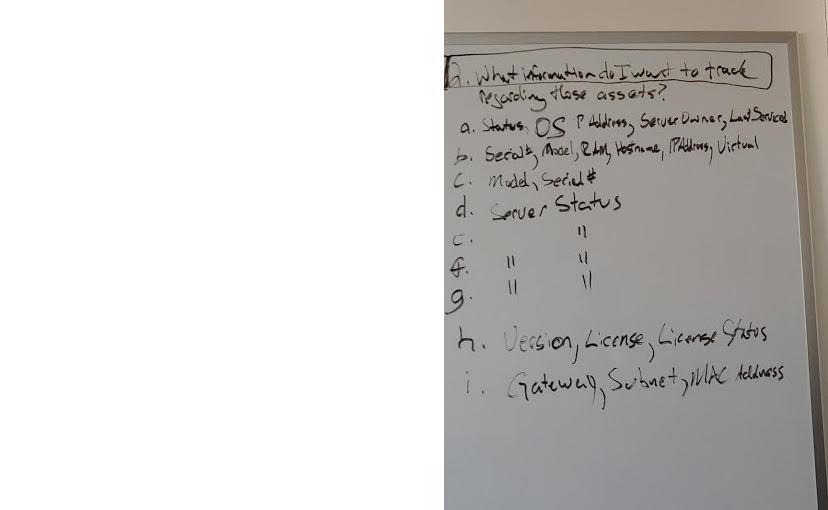 2. What information do I want to track
regarding those assets?
a. Status, OS IP Address, Server Owner, Last Serviced
b. Serial#, Model, RAM, Hostname, IP Address, Virtual
c. Model, Serial#
d. Server Status
e. "
f. " "
g. " "
h. Version, License, License Status
i. Gateway, Subnet, MAC Address